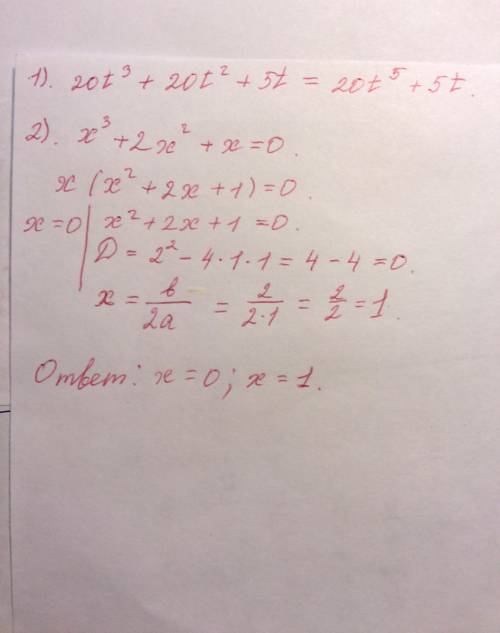 1). 20t³ + 20t² + 5t = 20t⁵ + 5t.
2). x³ + 2x² + x = 0.
x (x² + 2x + 1) = 0.
x = 0 | x² + 2x + 1 = 0.
D = 2² - 4·1·1 = 4 - 4 = 0.
x = b/2a = 2/2·1 = 2/2 = 1.
Ответ: x = 0; x = 1.